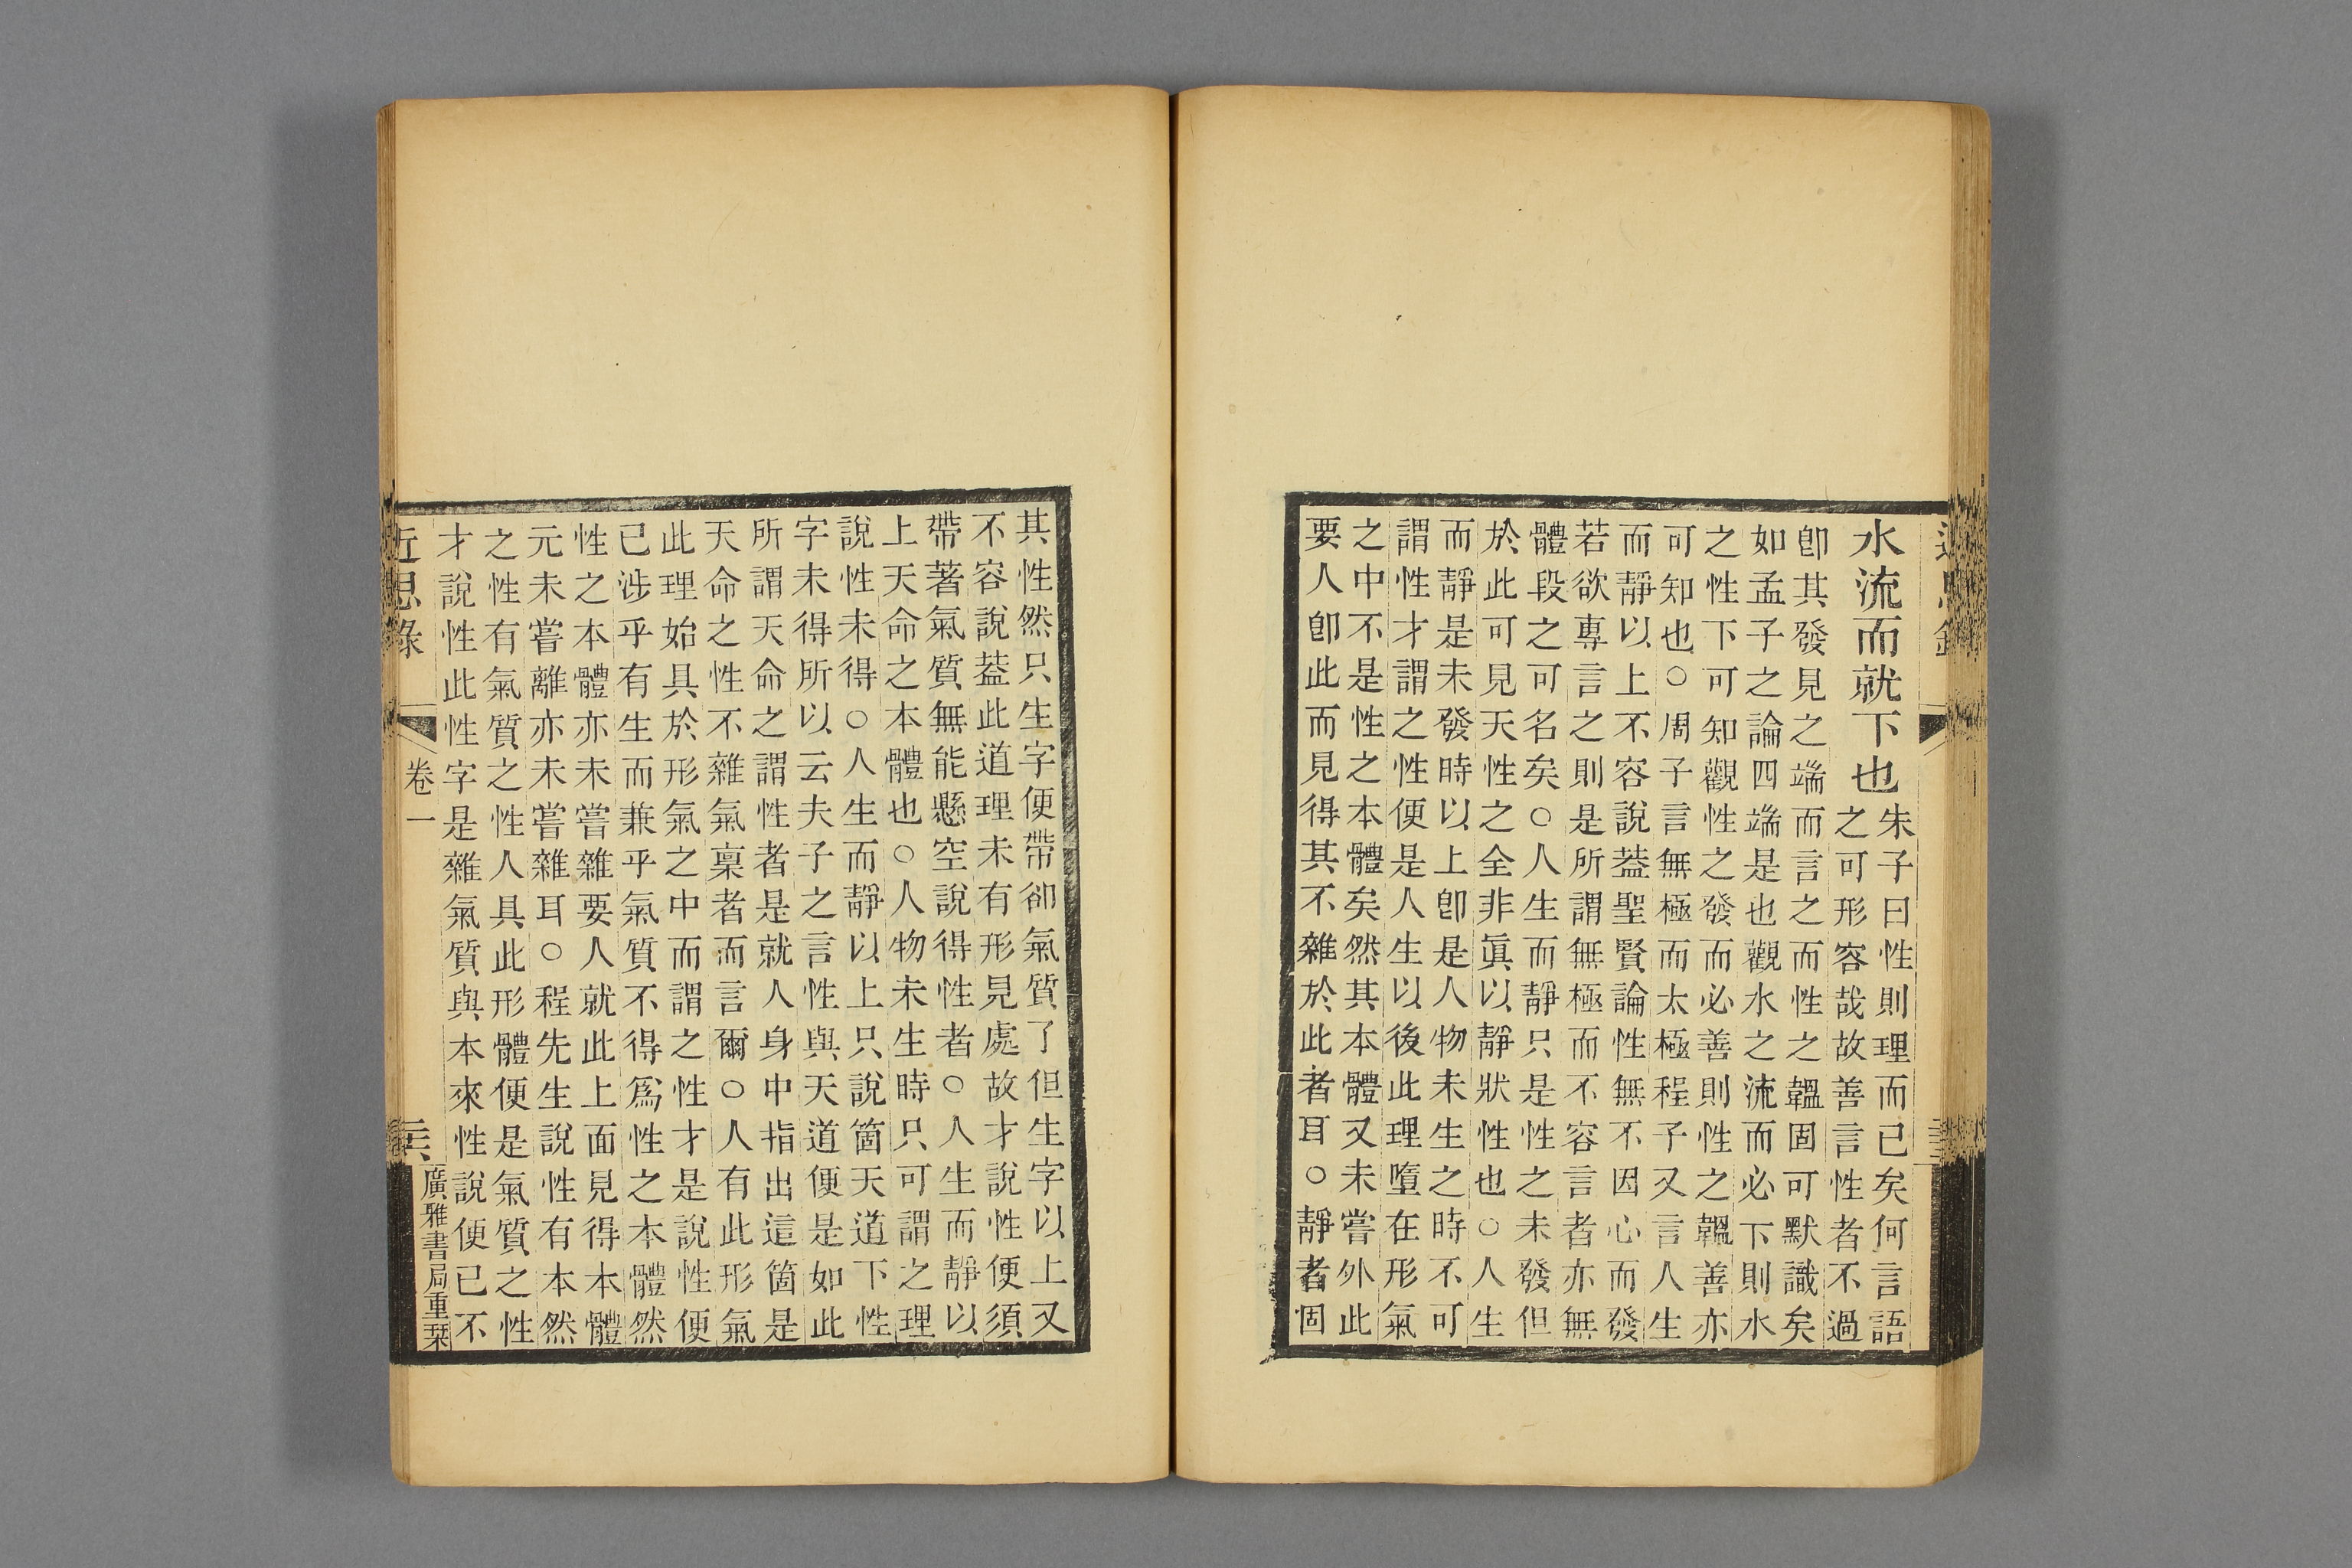 水流而就下也朱子曰性則理而已矣何言語
之可形容哉故善言性者不過
卽其發見之端而言之而性之韞固可默識矣
如孟子之論四端是也觀水之流而必下則水
之性下可知觀性之發而必善則性之韞善亦
可知也○周子言無極而太極程子又言人生
而靜以上不容說葢聖賢論性無不因心而發
若欲專言之則是所謂無極而不容言者亦無
體段之可名矣○人生而靜只是性之未發但
於此可見天性之全非眞以靜狀性也○人生
而靜是未發時以上卽是人物未生之時不可
謂性才謂之性便是人生以後此理墮在形氣
之中不是性之本體矣然其本體又未嘗外此
要人卽此而見得其不雜於此者耳○靜者固
其性然只生字便帶卻氣質了但生字以上又
不容說葢此道理未有形見處故才說性便須
帶著氣質無能懸空說得性者○人生而靜以
上天命之本體也○人物未生時只可謂之理
說性未得○人生而靜以上只說箇天道下性
字未得所以云夫子之言性與天道便是如此
所謂天命之謂性者是就人身中指出這箇是
天命之性不雜氣稟者而言爾○人有此形氣
此理始具於形氣之中而謂之性才是說性便
已涉乎有生而兼乎氣質不得爲性之本體然
性之本體亦未嘗雜要人就此上面見得本體
元未嘗離亦未嘗雜耳○程先生說性有本然
之性有氣質之性人具此形體便是氣質之性
才說性此性字是雜氣質與本來性說便已不
近思錄
卷一
廣雅書局重栞